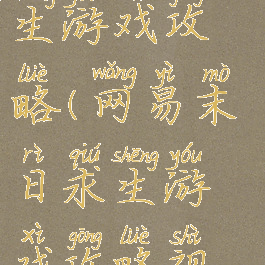 生游戏攻
lüè wǎng yì mò
略(网易末
rì qiú shēng yóu
日求生游
xì gōng lüè shì
戏攻略视